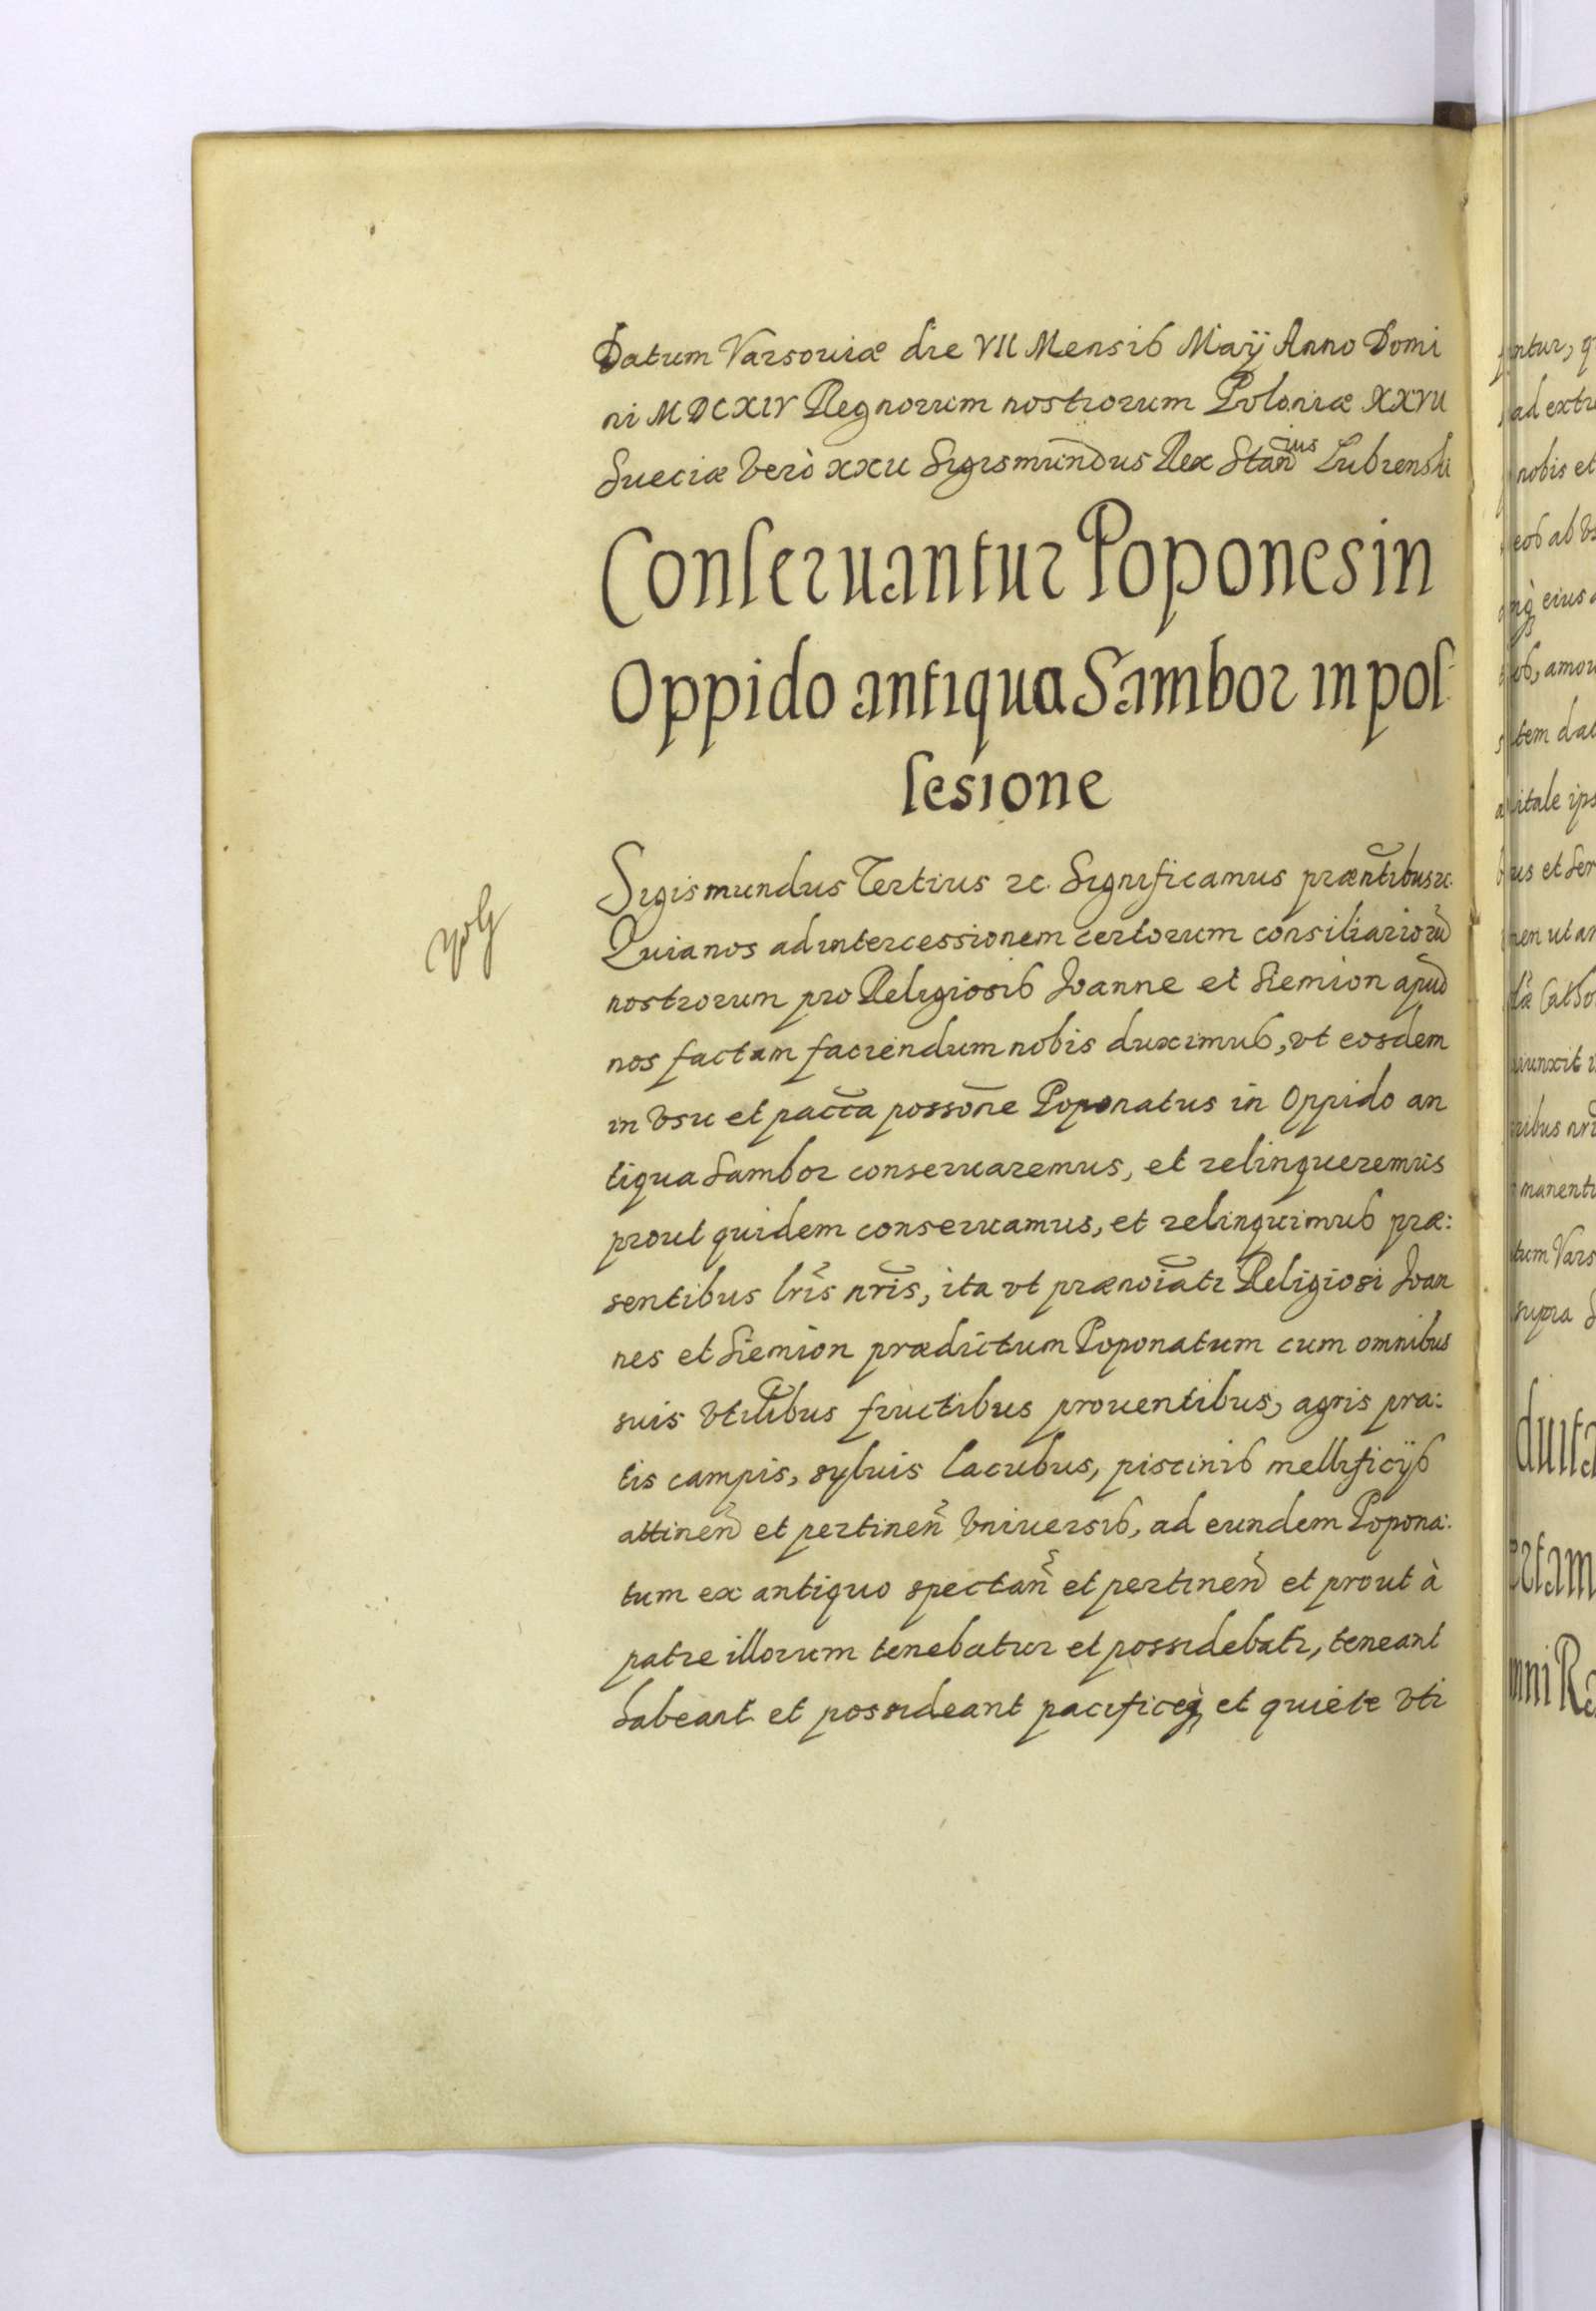 Datum Varsouiæ die VII Mensis Maÿ Anno Domi
ni MDCXIV Regnorum nostrorum Poloniæ XXVII
Sueciæ Verò XXII Sigismundus Rex Stan̄ius Lubienski
Conseruantur Popones in
Oppido antiqua Sambor in pos
sesione
Sigismundus Tertius &c. Significamus præn̄tibus &c.
Quia nos ad intercessionem certorum consiliariorū
nostrorum pro Religiosis Joanne et Siemion apud
nos factam faciendum nobis duximus, vt eosdem
in Vsu et pacc̄a possōne Poponatus in Oppido an
tiqua Sambor conseruaremus, et relinqueremus
prout quidem conseruamus, et relinquimus præ:
sentibus lr̄is nr̄is, ita vt prænoīati Religiosi Joan
nes et Siemion prædictum Poponatum cum omnibus
suis Vtilibus fructibus prouentibus, agris pra:
tis campis, syluis lacubus, piscinis mellificÿs
attinen̄ et pertinen̄ Vniuersis, ad eundem Popona:
tum ex antiquo spectan̄ et pertinen̄ et prout à
patre illorum tenebatur et possidebatr, teneant
habeant et possideant pacificeq; et quiete Vti